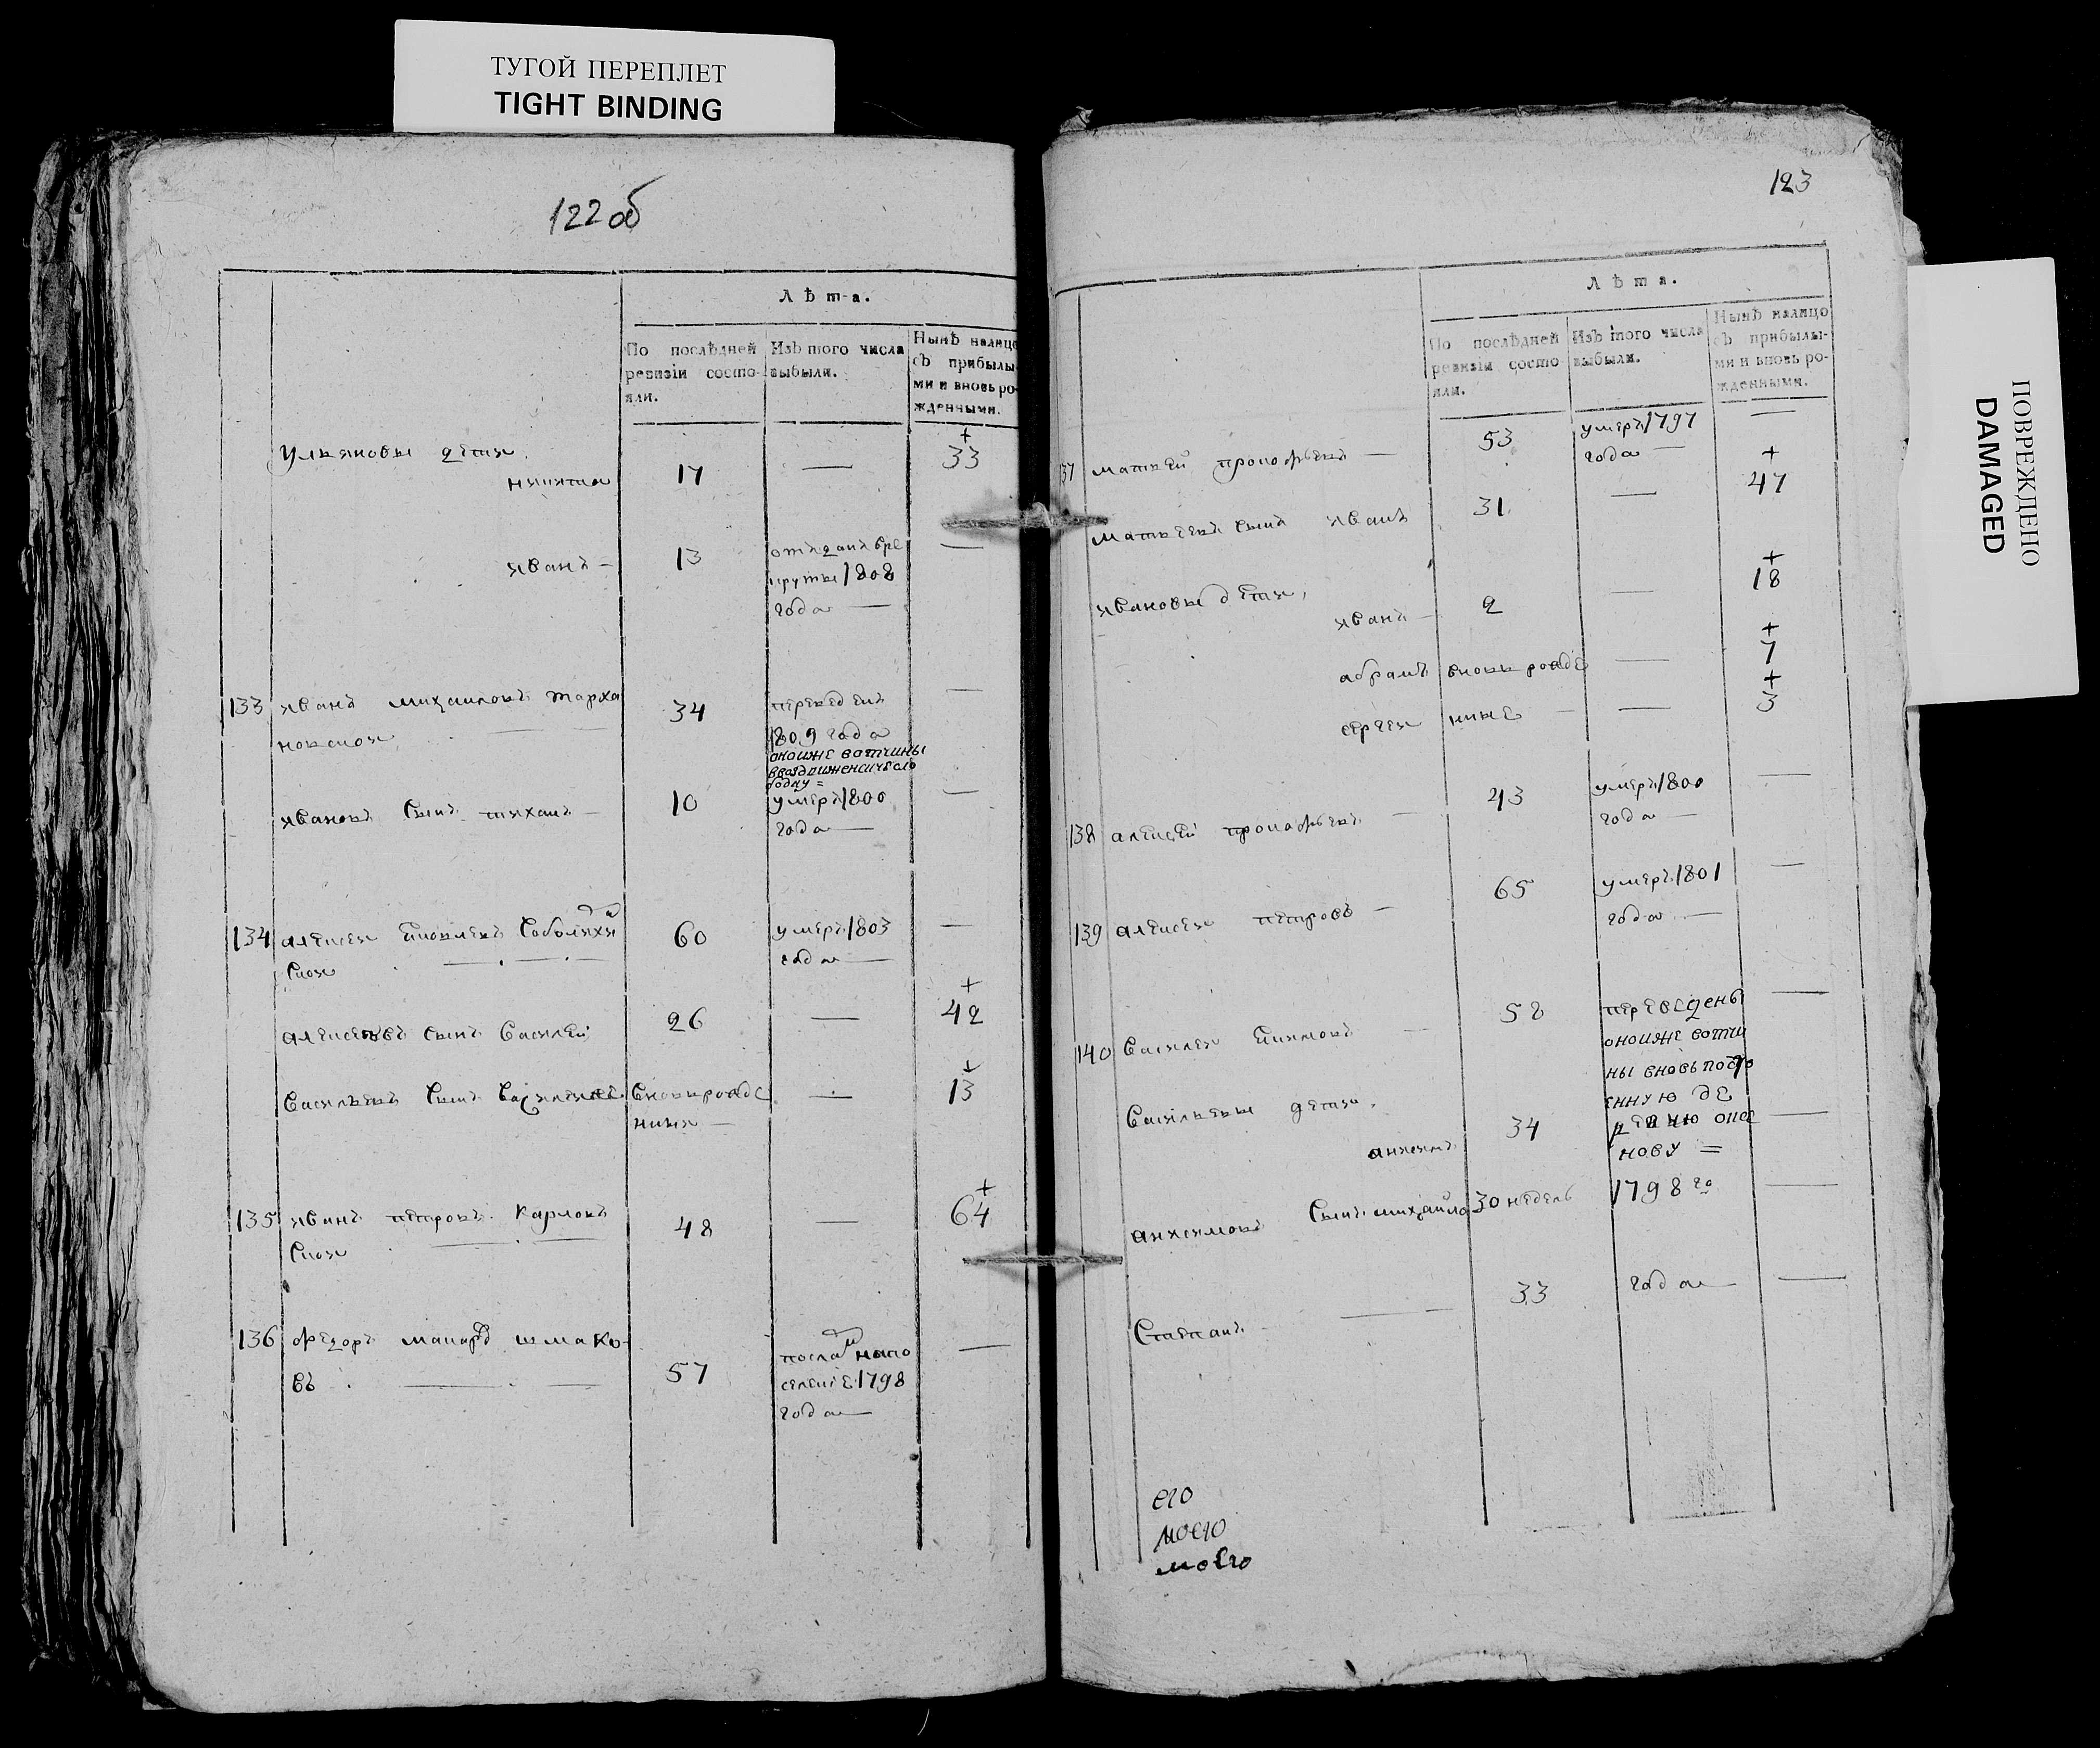 ТУГОЙ ПЕРЕПЛЕТ
TIGHT BINDING
122 об
Лѣта.
По послѣдней ревизіи состояли.
Изъ того числа выбыли.
Нынѣ налицо съ прибылыми и вновь рожденными.
Ульяновы дети
никита 17 — + 33
иванъ — 13 отъданъ вре
круты 1808
года — —
133 иванъ михаиловъ тарха
новской 34 переведенъ —
1809 года
оноиже вотчины
ивановъ сынъ тиханъ — 10 умеръ 1800 —
года —
134 алексеи яковлевъ Соболихи
ской 60 умеръ 1803 —
года —
алексеевъ сынъ Василей 26 — + 42
Васильевъ сынъ Василей вновь рожде — + 13
ныи —
135 иванъ петровъ Карлов
ской 48 — + 64
136 Федоръ шмако-
въ 57 посланъ напо —
селение 1798
года —
123
Лѣта.
По послѣдней ревизіи состояли.
Изъ того числа выбыли.
Нынѣ налицо съ прибылыми и вновь рожденными.
37 матвей прокофьевъ — 53 умеръ 1797 —
года —
матвеевъ сынъ иванъ 31 — + 47
ивановы дети,
иванъ — 2 — + 18
абрамъ вновь рожде — + 7
сергеи ные — — + 3
138 алексей прокофьевъ — 43 умеръ 1800 —
года —
139 алексеи петровъ — 65 умеръ 1801 —
года —
140 Василеи — 58 переведены —
оноиже вотчи
ны вновь постро
Васильевы дети. енную де
34 ревню —
нову =
Сынъ михайло 30 недель 1798 го —
Степанъ — 33 года — —
его
моего
моего
ПОВРЕЖДЕНО
DAMAGED